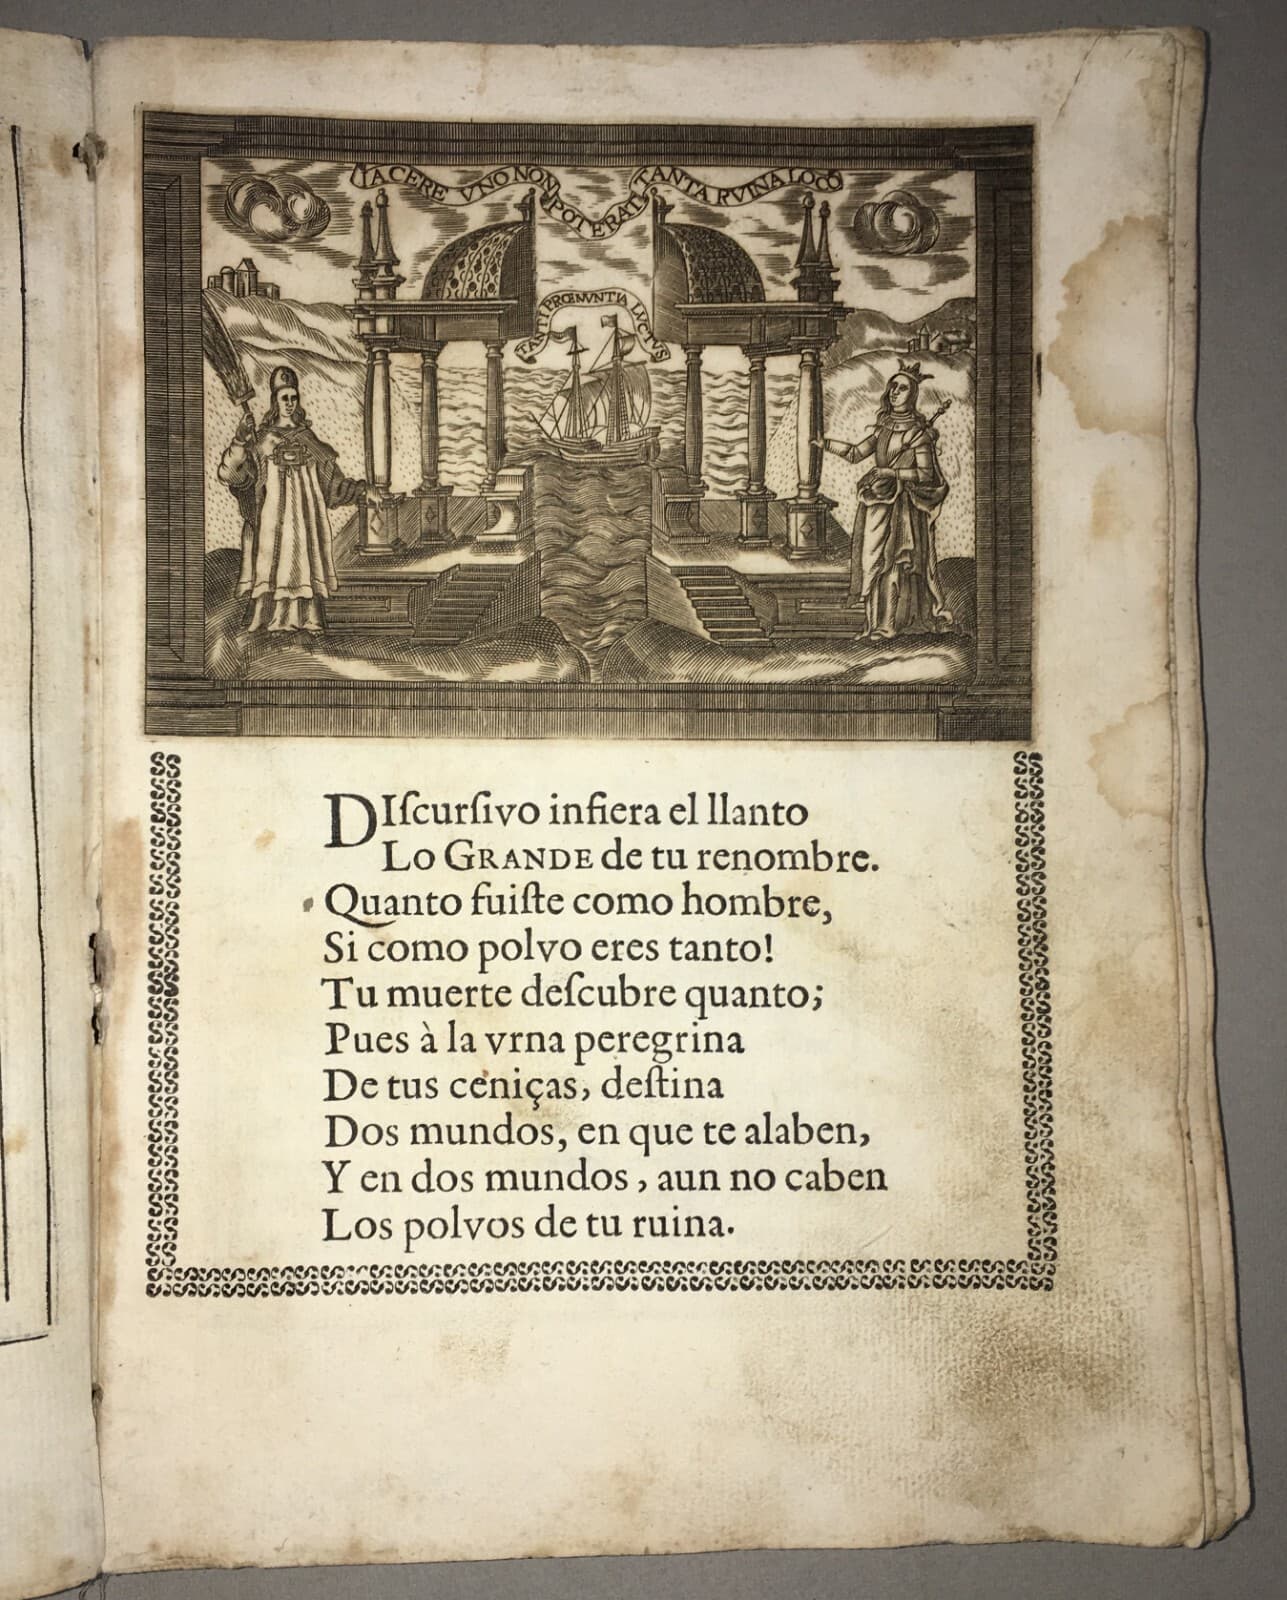 IACERE VNO NON POTERAT TANTA RVINA LOCO
TANTI PRŒNVNTIA LVCTVS
DIſcurſivo infiera el llanto
Lo GRANDE de tu renombre.
Quanto fuiſte como hombre,
Si como polvo eres tanto!
Tu muerte deſcubre quanto;
Pues à la vrna peregrina
De tus ceniças, deſtina
Dos mundos, en que te alaben,
Y en dos mundos, aun no caben
Los polvos de tu ruina.